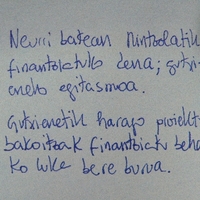 Neurri batean Kintzolatik
finantzatuko dena; gutxi-
eneko egitasmoa.
Gutxienetik harago proiektu
bakoitzak finantziatu beha-
ko luke bere burua.